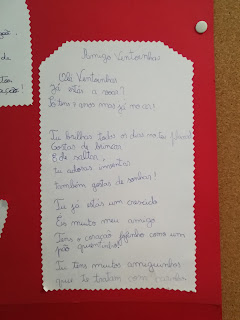 Amigo Ventoinhas
Olá Ventoinhas
Já estás a voar?
Só tens 7 anos mas já no ar!
Tu brilhas todos os dias
Gostas de brincar
E de saltar,
tu adoras inventar
também gostas de sonhar!
Tu já estás um crescido
És muito meu amigo
Tens o coração fofinho como um
pão quentinho!
Tu tens muitos amiguinhos
que te tratam com carinho